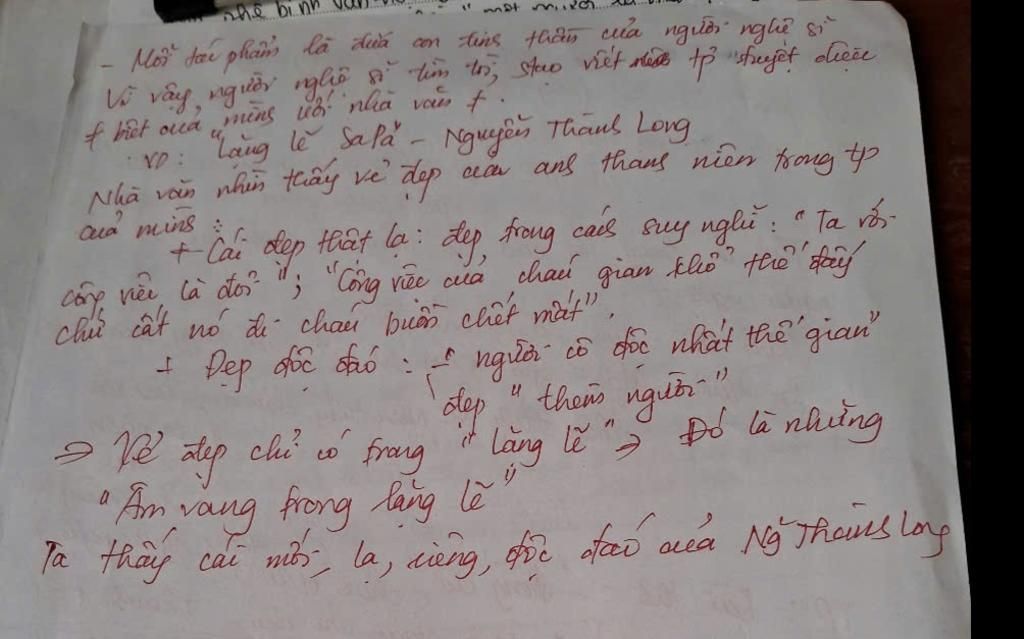 nhà bình văn
một người
- Mỗi tác phẩm là đứa con tinh thần của người nghệ sĩ
Vì vậy, người nghệ sĩ tìm tòi, sáng tạo viết nên tp tuyệt diệu
# biệt của mình với nhà văn #.
VD: "Lặng lẽ SaPa" - Nguyễn Thành Long
Nhà văn nhìn thấy vẻ đẹp của anh thanh niên trong tp
của mình:
+ Cái đẹp thật lạ: đẹp trong cách suy nghĩ: "Ta với
công việc là đôi"; "Công việc của cháu gian khổ thế đấy
chứ cất nó đi cháu buồn chết mất".
+ Đẹp độc đáo: - "người cô độc nhất thế gian"
đẹp "thèm người"
=> Vẻ đẹp chỉ có trong "lặng lẽ" => Đó là những
"Âm vang trong lặng lẽ"
Ta thấy cái mới, lạ, riêng, độc đáo của Ng Thành Long